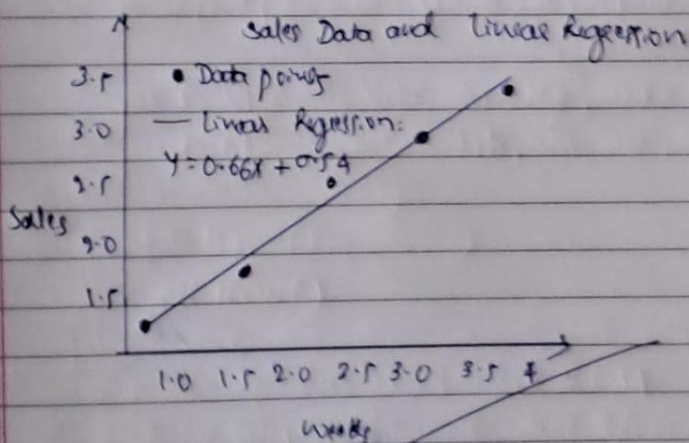 Sales Data and Linear Regression
3.5
• Data points
3.0
— Linear Regression:
Y = 0.66x + 0.54
2.5
Sales
2.0
1.5
1.0 1.5 2.0 2.5 3.0 3.5 4
Weeks